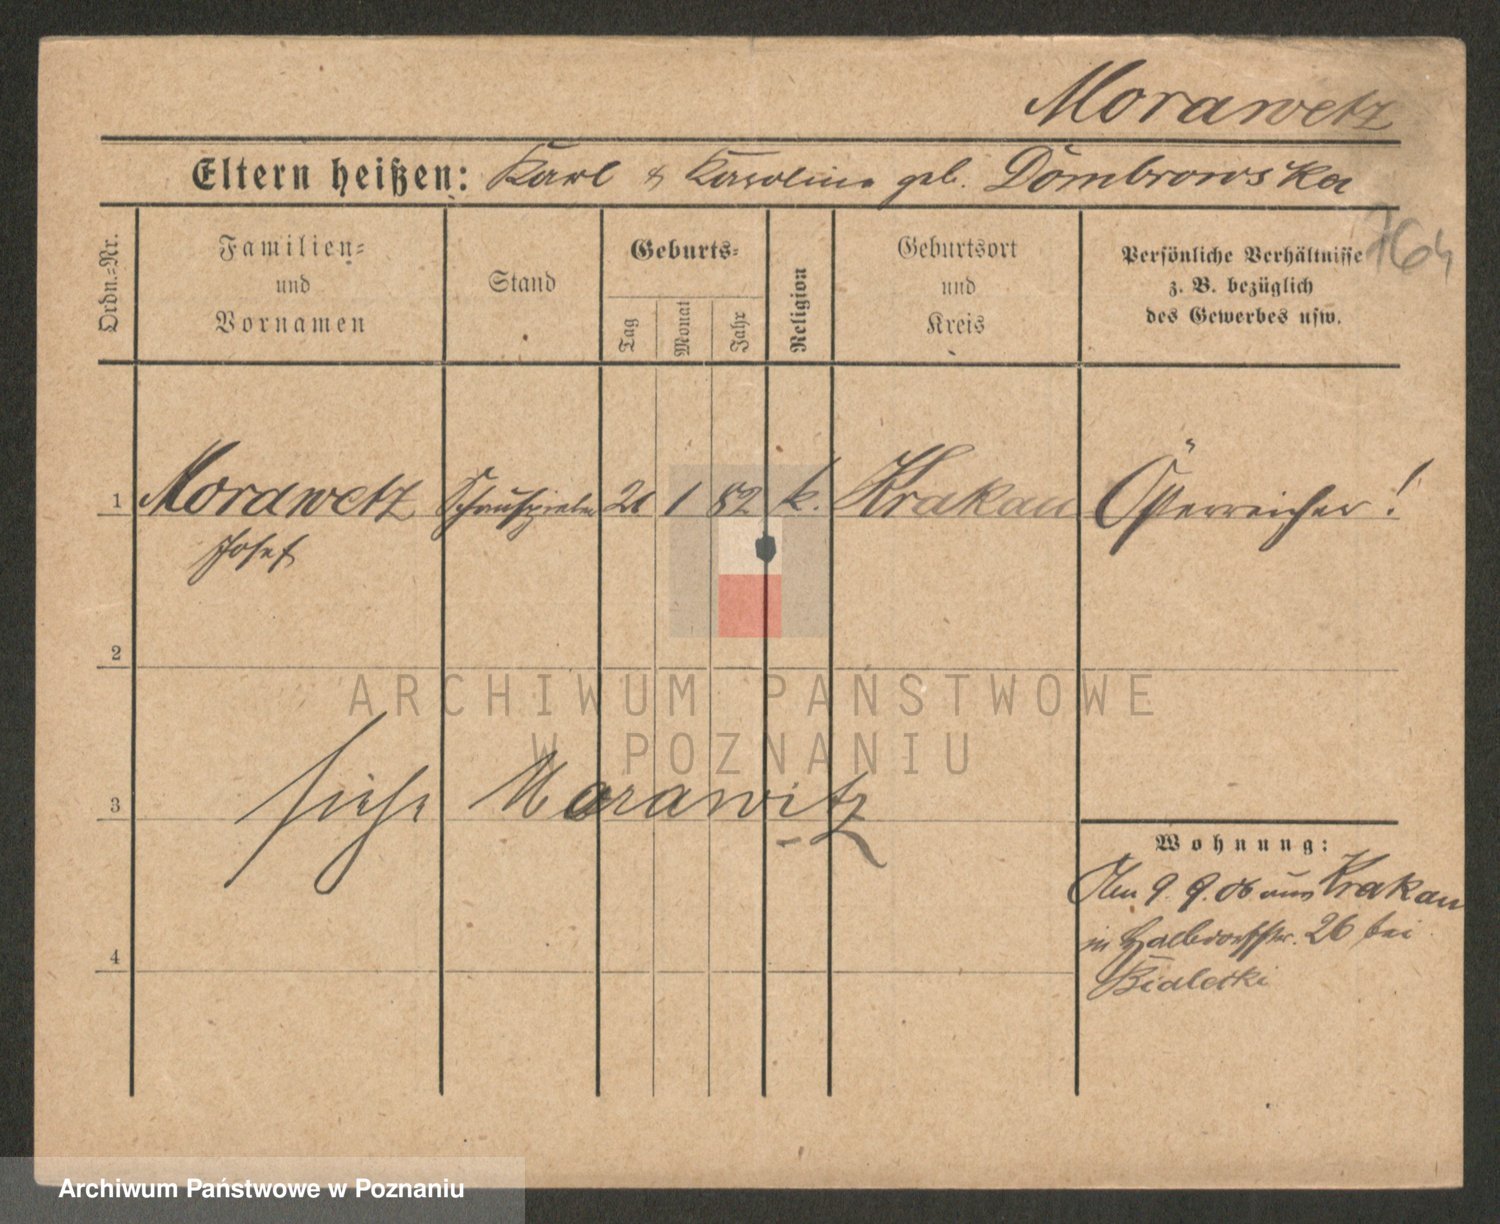 Morawetz
Eltern heißen: Karl & Karoline geb. Dombrowska
764
Ordn.-Nr.
Familien-
und
Vornamen
Stand
Geburts-
Tag
Monat
Jahr
Religion
Geburtsort
und
Kreis
Persönliche Verhältnisse
z. B. bezüglich
des Gewerbes usw.
1 Morawetz Schauspieler 21 1 82 k. Krakau Österreicher!
Josef
2
ARCHIWUM PAŃSTWOWE
W POZNANIU
3 siehe Morawitz
Wohnung:
Den 9. 9. 06 aus Krakau
in Halbdorfstr. 26 bei
Bialecki
4
Archiwum Państwowe w Poznaniu